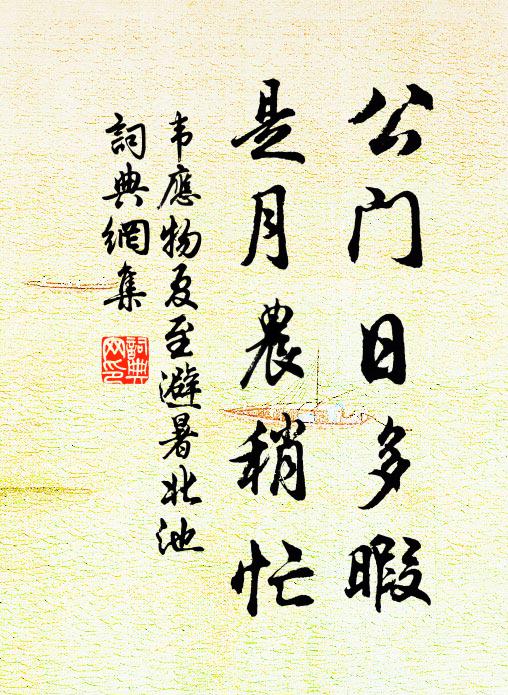 公门日多暇
是月農稍忙
韦應物夏至避暑北池
詞典網集
詞典
网印